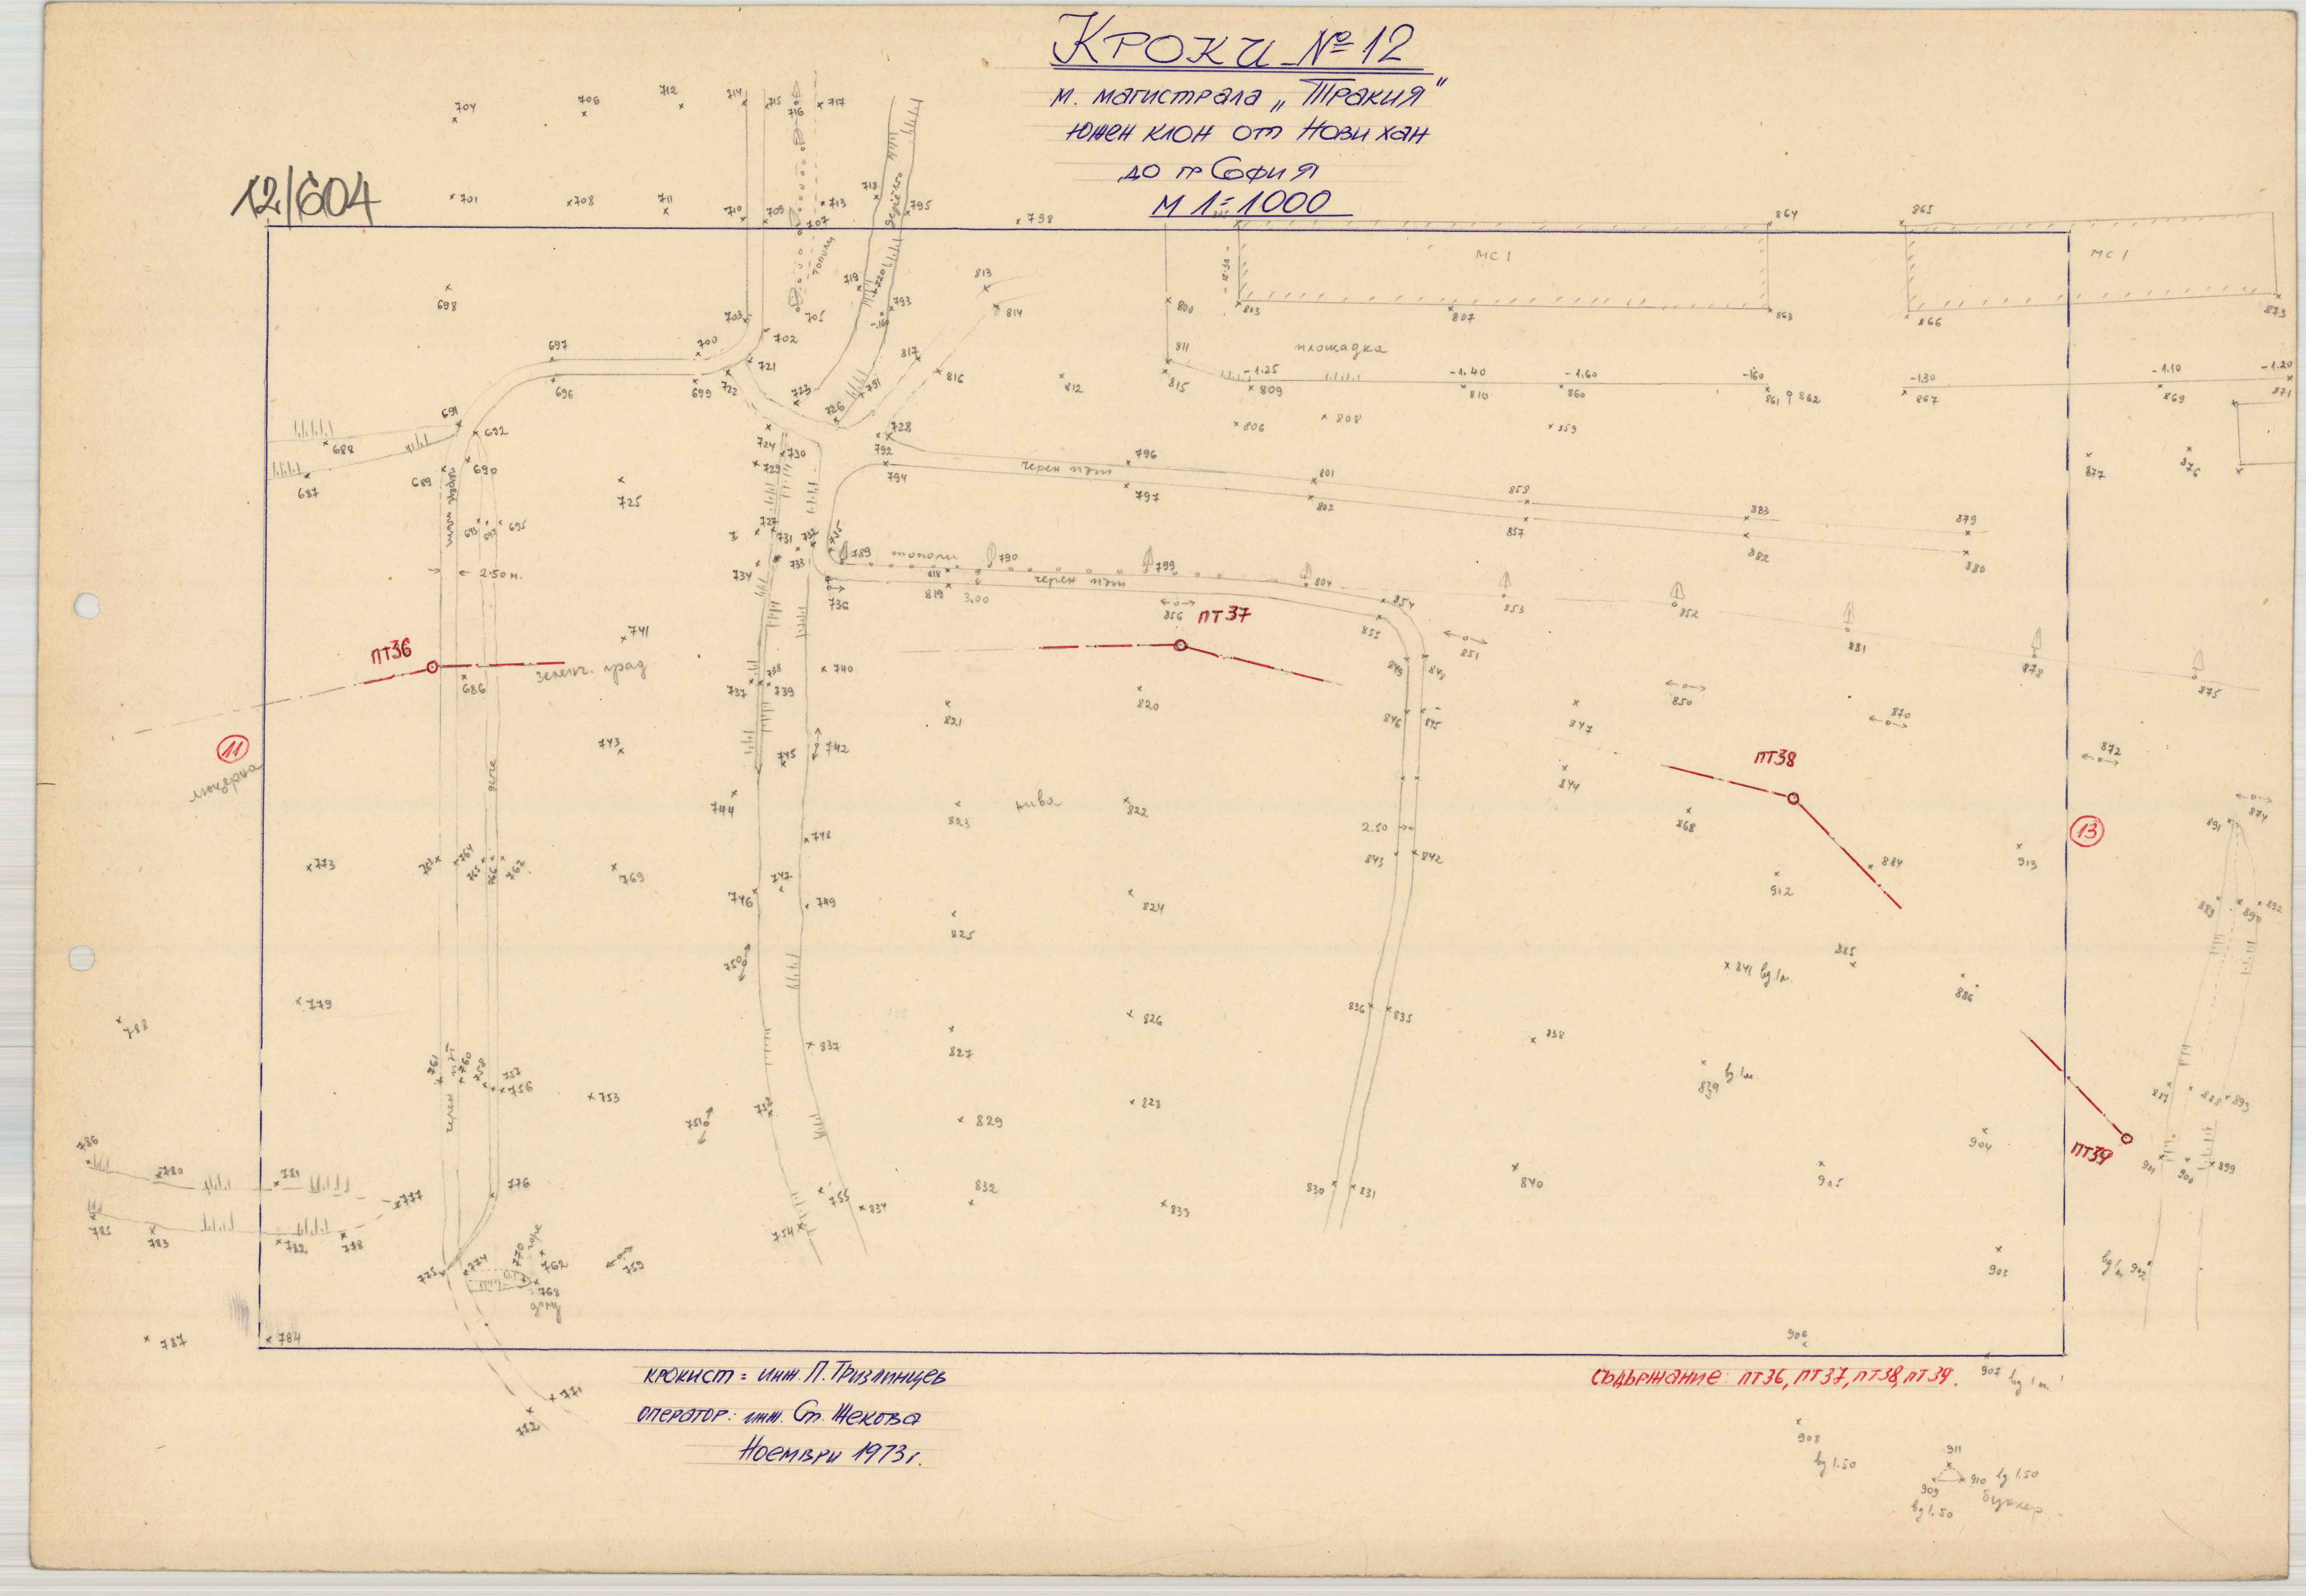 КРОКИ №12
м. магистрала „Тракия"
южен клон от Нови хан
до гр София
М 1:1000
12/604
704
706
712
714
715
716
717
701
708
711
710
709
707
713
718
795
798
864
865
дере
тополи
МС 1
МС 1
698
719
720
793
813
814
800
803
807
863
866
873
703
705
702
697
700
721
817
811
площадка
696
699
722
723
791
816
812
815
-1.25
809
-1.40
810
-1.60
860
-160
861
862
-130
867
-1.10
869
-1.20
871
691
692
726
728
806
808
859
688
724
730
792
черен път
796
801
877
876
687
689
690
725
729
794
797
802
858
883
879
693
695
727
731
857
882
880
733
789
тополи
790
799
2.50 м.
734
736
818
819
3.00
черен път
804
854
853
852
856
ПТ37
855
881
ПТ36
741
851
878
зеленч. град
686
738
737
739
740
849
848
875
820
850
821
846
845
847
870
11
743
745
742
872
люцерна
ПТ38
дере
744
нива
823
822
844
868
2.50
13
874
891
773
763
764
765
766
767
769
748
843
842
884
913
746
747
749
824
912
889
890
892
825
750
841
885
779
886
788
826
836
835
838
837
827
761
760
758
757
756
753
черен
839
887
888
893
751
752
829
828
904
ПТ39
786
780
781
777
776
755
834
832
833
830
831
840
905
901
900
899
785
783
782
778
754
775
774
770
горе
762
768
долу
759
903
902
787
784
906
крокист: инж. П. Тризлинцев
съдържание: пт36, пт37, пт38, пт39.
907
771
772
оператор: инж. Сп. Жекова
Ноември 1973 г.
908
911
909
910
бункер